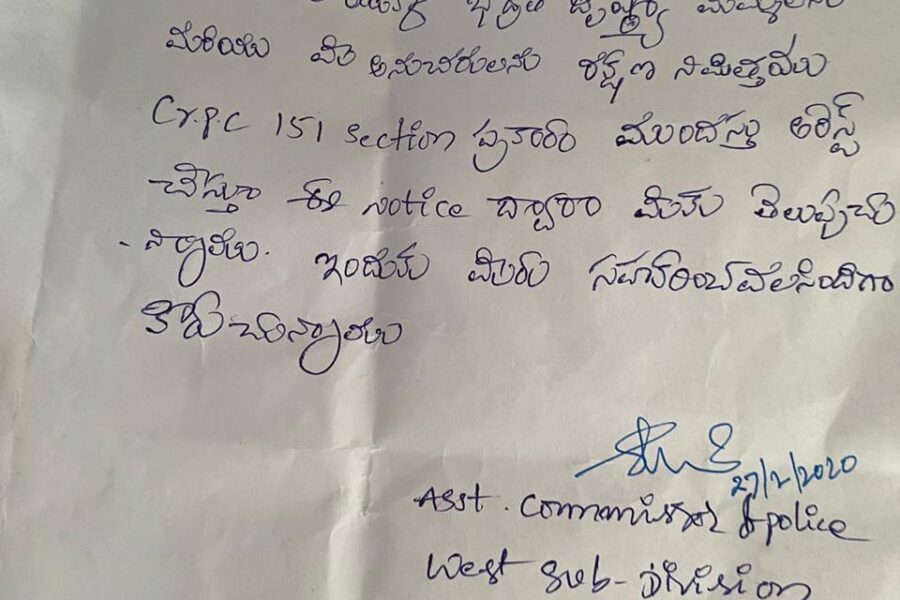 భద్రతా దృష్ట్యా మిమ్మలను
మరియు మీ అనుచరులను రక్షణ నిమిత్తము
Cr.P.C 151 section ప్రకారం ముందస్తు అరెస్ట్
చేస్తూ ఈ notice ద్వారా మీకు తెలుపుచు
న్నాము. ఇందుకు మీరు సహకరించవలసిందిగా
కోరుచున్నాము
27/2/2020
Asst. Commissioner of police
West Sub-Division